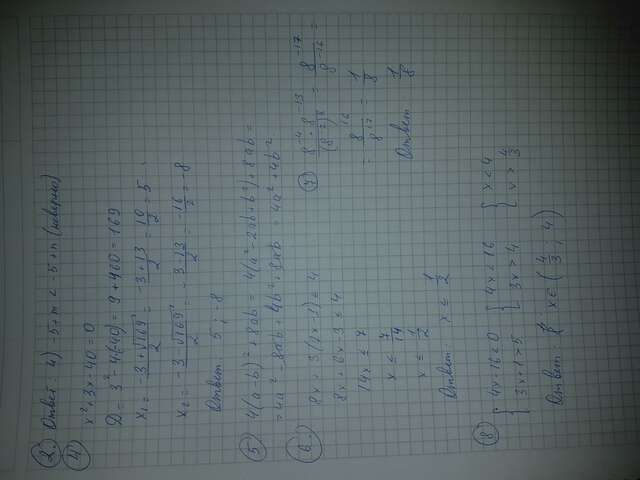 ② Ответ: 4) -5+m < -5+n (неверно)
④ x²+3x-40=0
D = 3²-4(-40) = 9+160 = 169
x₁ = -3+√169/2 = -3+13/2 = 10/2 = 5;
x₂ = -3-√169/2 = -3-13/2 = -16/2 = -8
Ответ: 5; -8
⑤ 4(a-b)²+8ab = 4(a²-2ab+b²)+8ab =
= 4a²-8ab+4b²+8ab = 4a²+4b²
⑥ 8x+3(2x-1) ≤ 4
8x+6x-3 ≤ 4
14x ≤ 7
x ≤ 7/14
x ≤ 1/2
Ответ: x ≤ 1/2
⑦ 8⁻⁴·8⁻¹³/(8⁻²)⁸ = 8⁻¹⁷/8⁻¹⁶ =
= 8¹⁶/8¹⁷ = 1/8
Ответ: 1/8
⑧ { 4x-16<0 { 4x<16 { x<4
{ 3x+1>5 { 3x>4 { x>4/3
Ответ: x∈(4/3; 4)